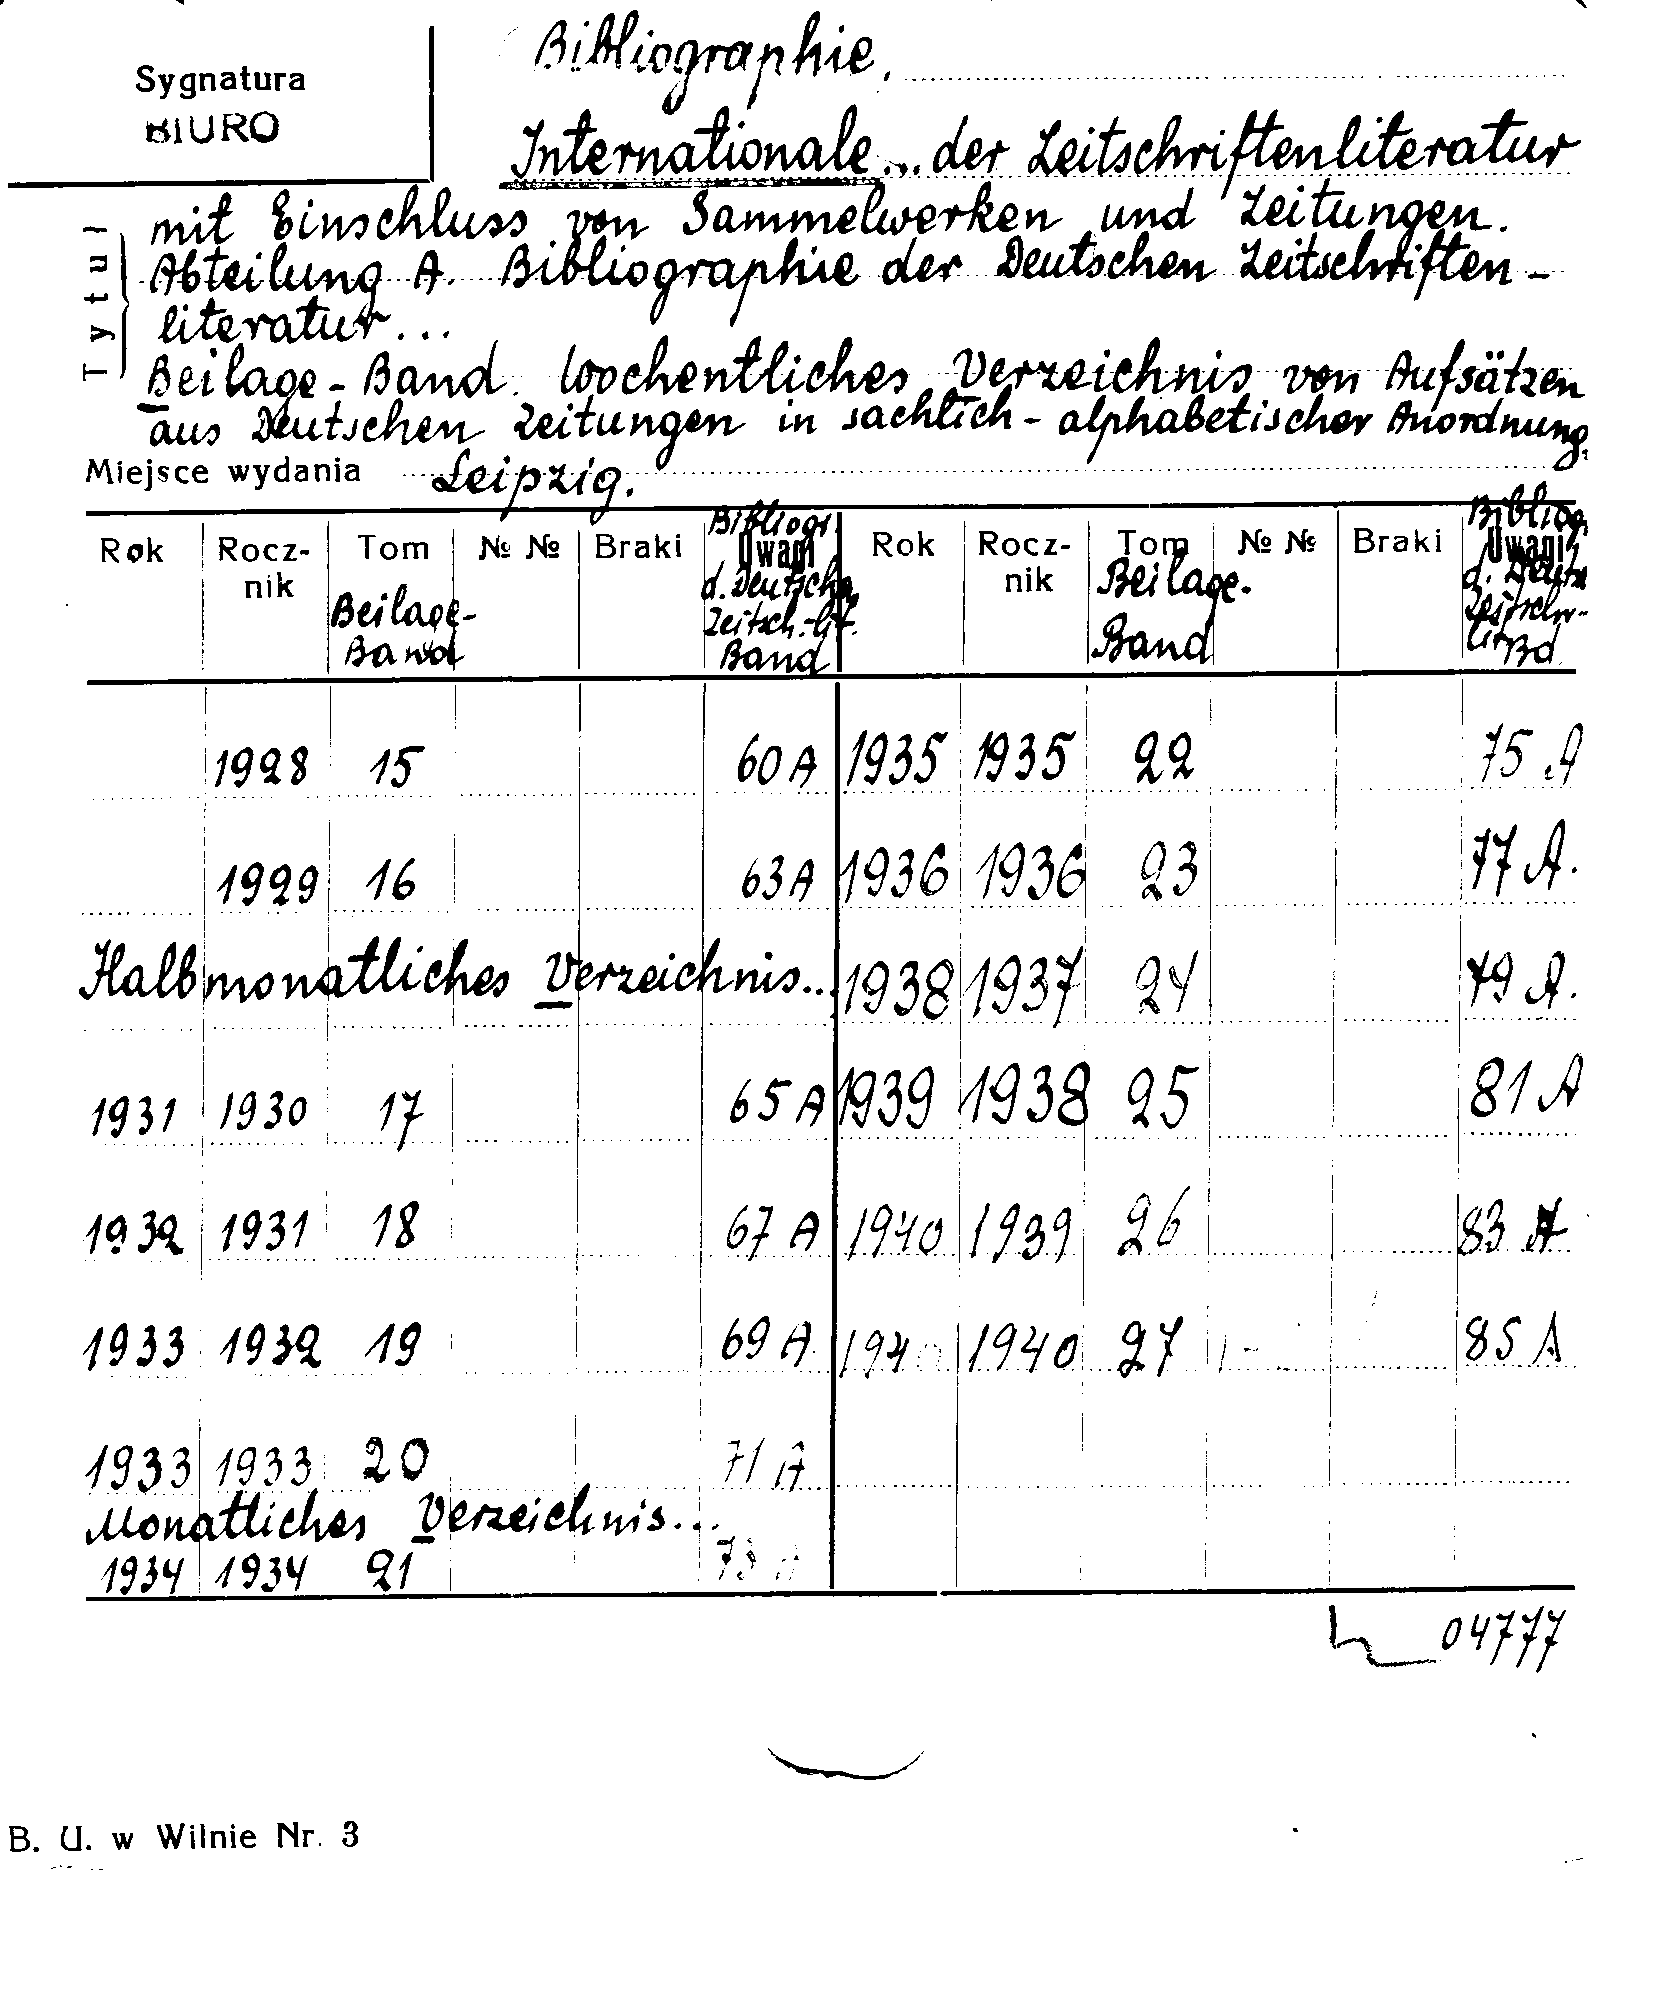 Sygnatura
BIURO
Bibliographie.
Internationale... der Zeitschriftenliteratur
Tytuł
mit Einschluss von Sammelwerken und Zeitungen.
Abteilung A. Bibliographie der Deutschen Zeitschriften-
literatur...
Beilage-Band. Wochentliches Verzeichnis von Aufsätzen
aus Deutschen Zeitungen in sachlich-alphabetischer Anordnung.
Miejsce wydania Leipzig.
Rok Rocz-nik Tom Beilage-Band № № Braki Uwagi Bibliogr. d. Deutsch. Zeitsch.-lit. Band Rok Rocz-nik Tom Beilage-Band № № Braki Uwagi Bibliog. d. Deuts. Zeitschr-lit Bd
1928 15 60 A 1935 1935 22 75 A
1929 16 63 A 1936 1936 23 77 A.
Halbmonatliches Verzeichnis... 1938 1937 24 79 A.
1931 1930 17 65 A 1939 1938 25 81 A
1932 1931 18 67 A 1940 1939 26 83 A
1933 1932 19 69 A 1940 1940 27 85 A
1933 1933 20 71 A
Monatliches Verzeichnis...
1934 1934 21 73 A
04777
B. U. w Wilnie Nr. 3